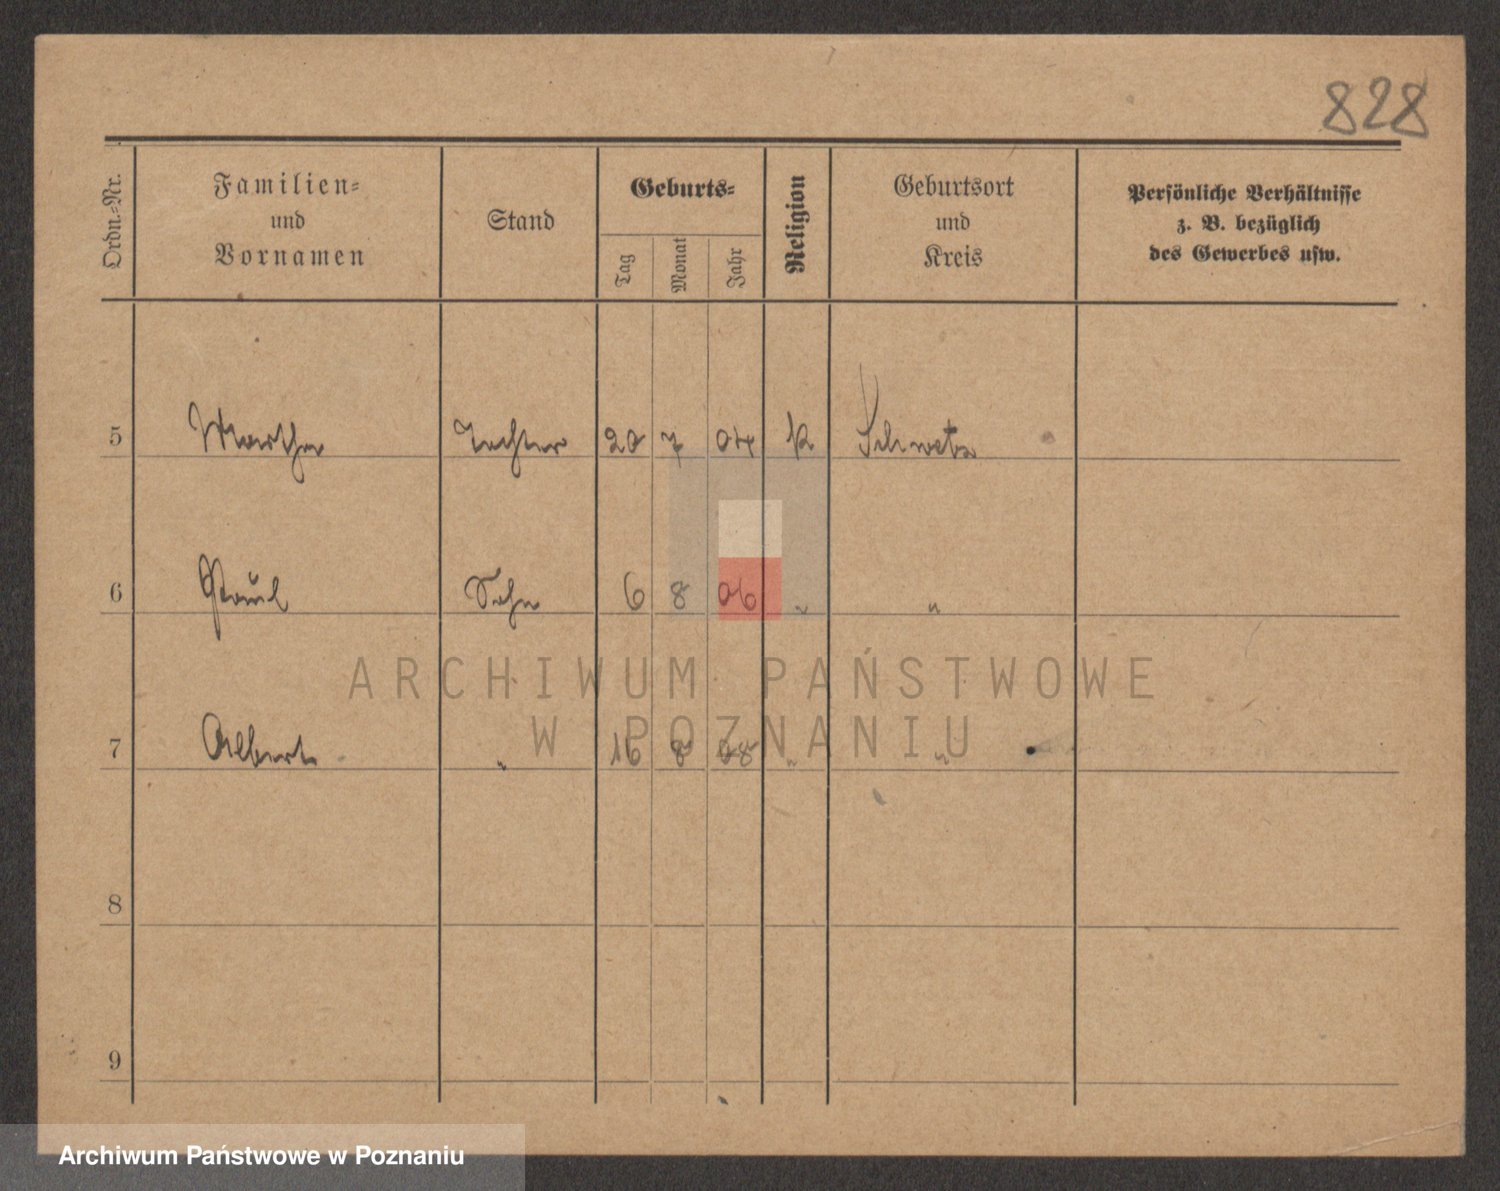 828
Ordn.=Nr.
Familien=
und
Vornamen
Stand
Geburts=
Tag
Monat
Jahr
Religion
Geburtsort
und
Kreis
Persönliche Verhältnisse
z. B. bezüglich
des Gewerbes usw.
5 Martha Tochter 20 7 04 k Schwetz
6 Paul Sohn 6 8 06 " "
ARCHIWUM PAŃSTWOWE
W POZNANIU
7 Albert " 16 8 08 " "
8
9
Archiwum Państwowe w Poznaniu